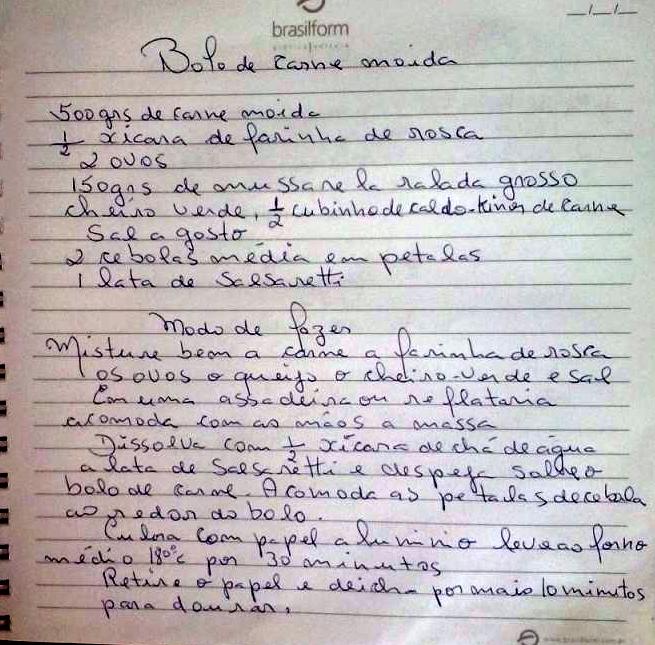 brasilform
__/__/__
Bolo de carne moida
500grs de carne moida
1/2 xicara de farinha de rosca
2 ovos
150grs de mussarela ralada grosso
cheiro verde, 1/2 cubinho de caldo-kinor de carne
Sal a gosto
2 cebolas média em petalas
1 lata de Salsaretti
Modo de fazer
Misture bem a carne a farinha de rosca
os ovos o queijo o cheiro-verde e sal
Em uma assadeira ou reflataria
acomoda com as mãos a massa
Dissolva com 1/2 xícara de chá de água
a lata de Salsaretti e despeja sobre o
bolo de carne. Acomoda as petalas de cebola
ao redor do bolo.
Cubra com papel aluminio leve ao forno
médio 180°c por 30 minutos
Retire o papel e deicha por mais 10 minutos
para dourar.